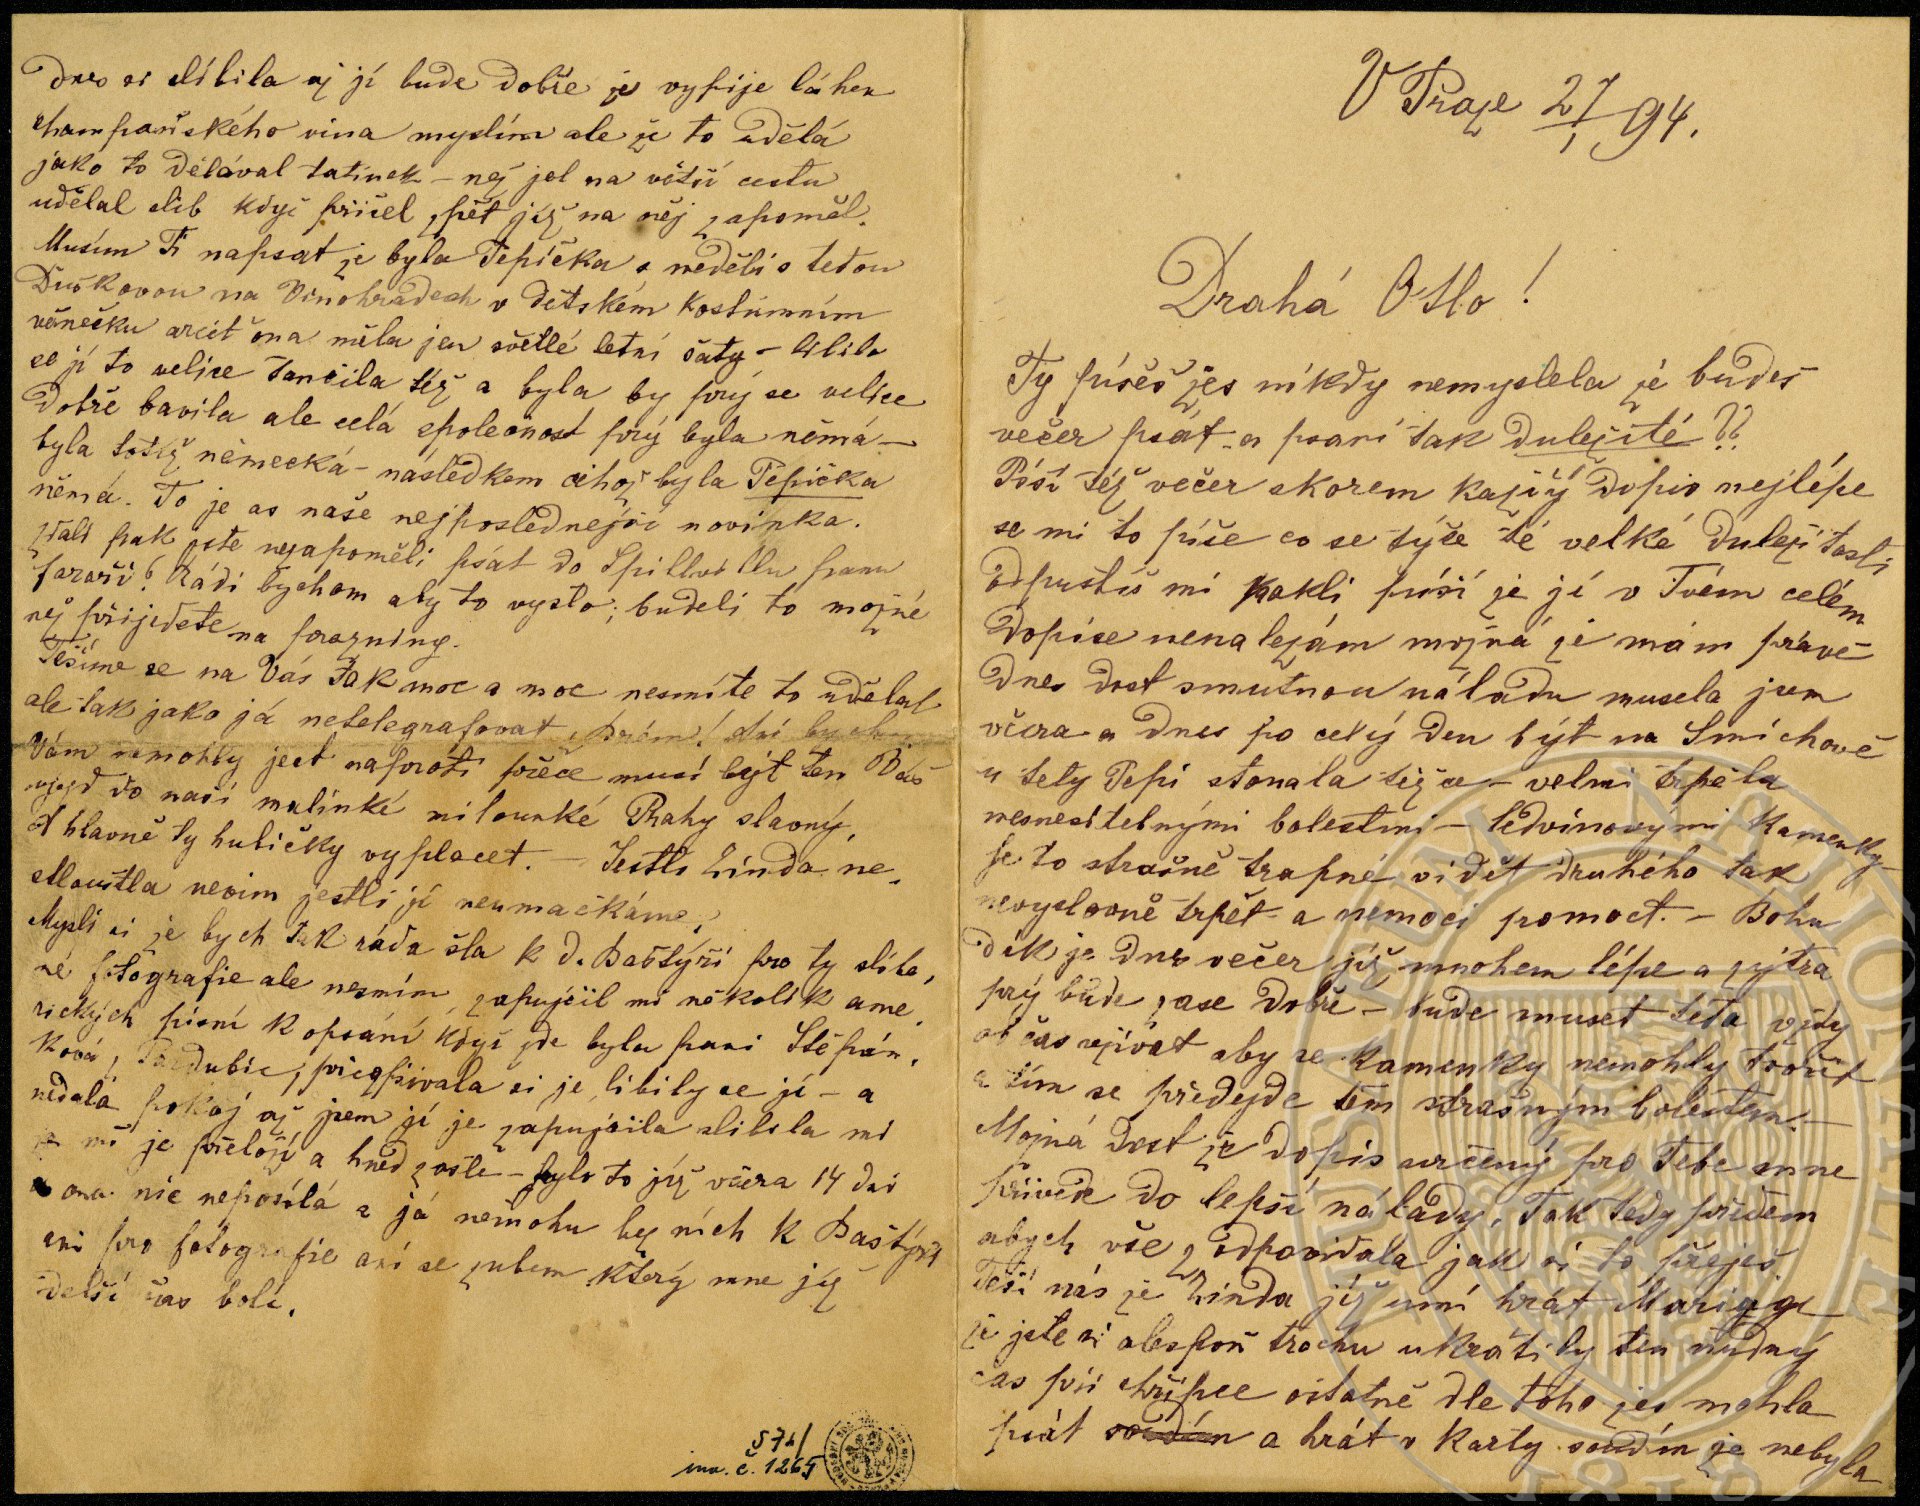 V Praze 27/1 94.
Drahá Otlo!
Ty píšeš žes nikdy nemyslela že budeš
večer psát a psaní tak duležité??
Píši též večer skorem každý dopis nejlépe
se mi to píše co se týče té velké duležitosti
odpustíš mi pakli píši že jí v Tvém celém
dopise nenalezám možná že mám právě
dnes dost smutnou náladu musela jsem
včera a dnes po celý den být na Smíchově
u tety Pepi stonala též – velmi trpěla
nesnesitelnými bolestmi – ledvinovými kamenky –
je to strašně trapné vidět druhého tak
nevyslovně trpět a nemoci pomoct. – Bohu
dík je dnes večer již mnohem lépe a zýtra
prý bude zase dobře – bude muset teta vždy
občas užívat aby se kamenky nemohly tvořit
a tím se předejde těm strašným bolestem. –
Možná dost že dopis určený pro Tebe mne
přivede do lepší nálady. Tak tedy předem
abych vše zodpovídala jak si to přeješ
Těší nás že Linda již umí hrát Mariage
že jste si alespoň trochu ukrátily ten nudný
čas při chřipce ostatně dle toho žes mohla
psát a hrát v karty soudím že nebyla
dnes si slíbila až jí bude dobře že vypije láhev
champaňského vína myslím ale že to udělá
jako to dělával tatínek – než jel na větší cestu
udělal slib když přišel zpět již na něj zapoměl.
Musím Ti napsat že byla Pepička v neděli s tetou
Duškovou na Vinohradech v dětském kostumním
věnečku arciť ona měla jen světlé letní šaty – líbilo
se jí to velice tančila též a byla by prý se velice
dobře bavila ale celá společnost prý byla němá –
byla totiž německá – následkem čehož byla Pepička
němá. To je as naše nejposlednější novinka.
zdali pak jste nezapoměli psát do Spillvillu panu
faráři? Rádi bychom aby to vyšlo; budeli to možné
než přijedete na prazniny.
Těšíme se na Vás tak moc a moc nesmíte to udělat
ale tak jako já netelegrafovat, prám! ani bych
Vám nemohly ject naproti přece musí být ten Váš
vjezd do naší malinké milounké Prahy slavný.
A hlavně ty hubičky vyplacet. – Jestli Linda ne-
stloustla nevim jestli jí neumačkáme.
Mysli si že bych tak ráda šla k d. Baštýři pro ty slíbe-
né fotografie ale nesmím, zapujčil mi několik ame-
rických písní k opsání když zde byla paní Štěpán-
ková z Pardubic, přezpívala si je, líbily se jí – a
nedala pokoj až jsem jí je zapujčila slíbila mi
že mi je přeloží a hned zašle – bylo to již včera 14 dní
a ona nic neposílá a já nemohu bez nich k Baštýři
ani pro fotografie ani se zubem který mne již
delší čas bolí.
S 76/
inv. č. 1265